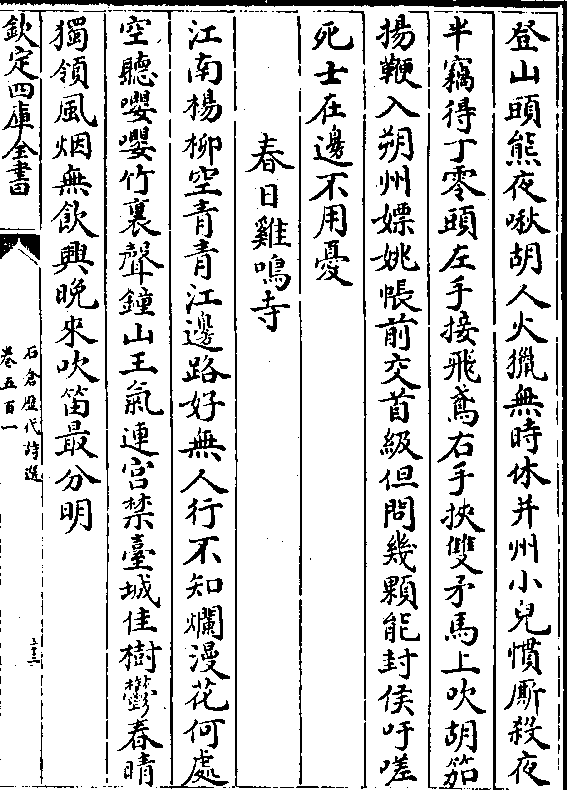 登山頭熊夜啾胡人火獵無時休并州小兒慣厮殺夜
半竊得丁零頭左手接飛鳶右手挾雙矛馬上吹胡笳
揚鞭入朔州嫖姚帳前交首級但問幾顆能封侯吁嗟
死士在邊不用憂
春日雞鳴寺
江南楊柳空青青江邊路好無人行不知爛漫花何處
空聽嚶嚶竹裏聲鐘山王氣連宫禁臺城佳樹鬱春晴
獨領風烟無飲興晚來吹笛最分明
欽定四庫全書
石倉歷代詩選
卷五百一